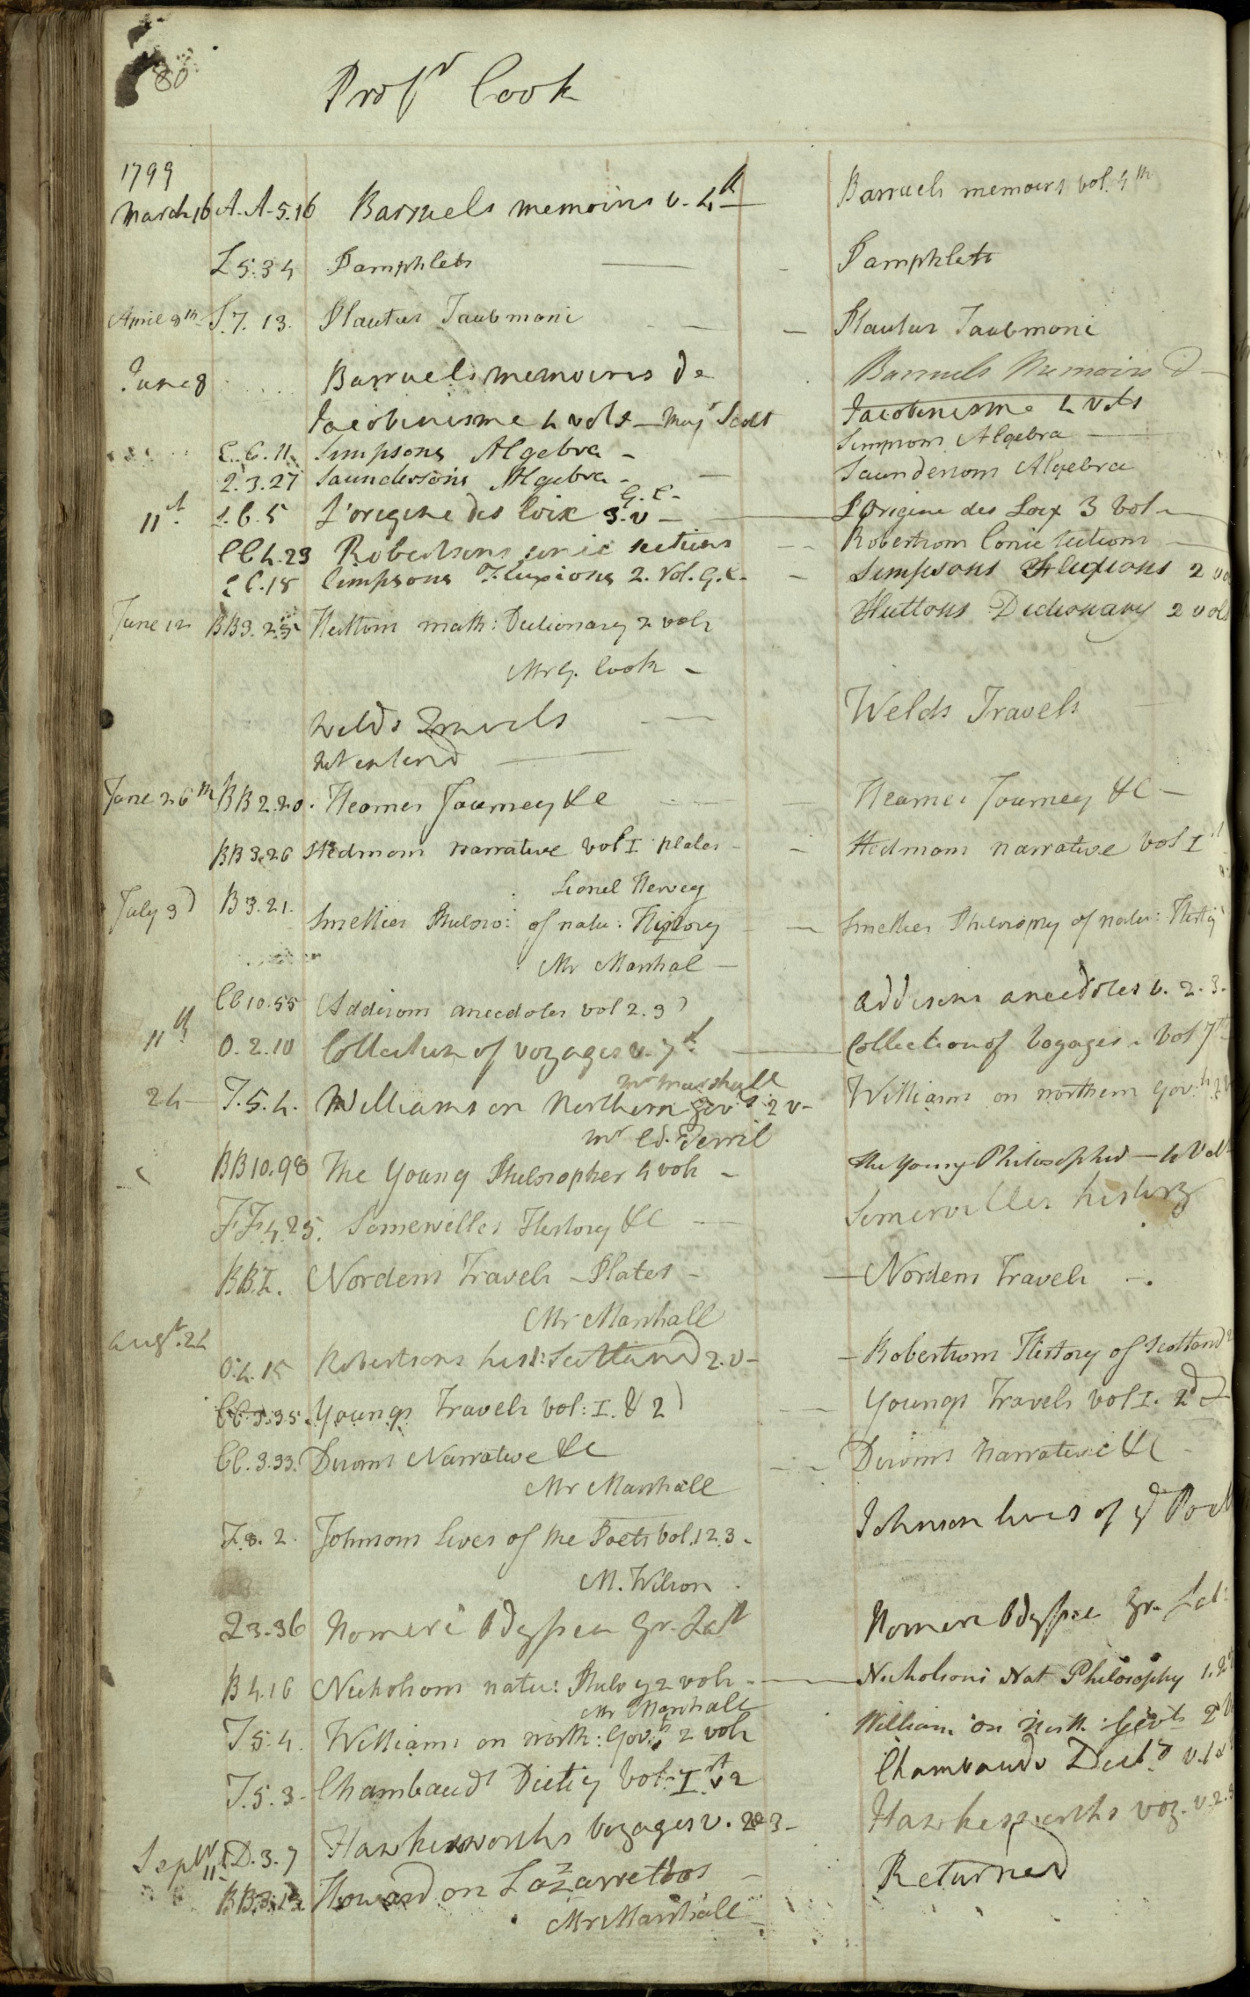 80
Profr Cook
1799
March 16 A.A.5.16 Barruels memoirs v. 4th — Barruels memoirs vol. 4th
L 5.34 Pamphlets — Pamphlets
April 8th S.7.13. Plautus Taubmani — Plautus Taubmani
June 8 Barruels memoires de Barruels Memoirs d
Jacobinisme 4 vols — Majr Scott Jacobinisme 4 vols
E.C.11 Simpsons Algebra - Simpsons Algebra —
2.3.27 Saundersons Algebra - Saundersons Algebra
G.C.
11th L.6.5 L'origine des loix 3.v — L'Origine des Loix 3 vol
CC4.23 Robertsons conic sections — Robertsons Conic Sections —
EC.18 Simpsons Fluxions 2. Vol. G.C. - Simpsons Fluxions 2 vo
June 12 BB3.25 Huttons math: Dictionary 2 vols Huttons Dictionary 2 vols
Mr G. Cook -
Welds Travels — Welds Travels
June 26th BB2.20. Hearnes Journey &c Hearnes Journey &c —
BB3.26 Stedmans narrative vol I plates - Stedmans narrative vol I
Lionel Hervey
July 3d B3.21. Smellies Philoso: of natu: History — Smellies Philosophy of natu: Histy
Mr Marshal —
CC10.55 Addisons anecdotes vol 2.3d addisons anecdotes v. 2.3.
11th O.2.10 Collection of voyages v. 7th — Collection of Voyages. vol 7th
Mr Marshall
24 T.5.4. Williams on Northern Govts 2 v- Williams on northern Gov:ts 2
Mr Ed. Terril
BB10.98 The Young Philosopher 4 vols - The Young Philosopher — 4 Vol
FF.4.25. Somervilles History &c — Somervilles history
BB.I. Nordens Travels - Plates - — Nordens Travels -.
Mr Marshall
Augt. 24 O.4.15 Robertsons hist: Scotland 2.v- — Robertsons History of Scotland 2
CC.3.35. Youngs Travels vol: I. & 2d — Youngs Travels vol I. 2d
CC.3.33. Diroms Narrative &c — Diroms narrative &c -
Mr Marshall
Z.8.2. Johnsons Lives of the Poets vol. 1 2 3. Johnson lives of ye Poets
M. Wilson.
23.36 Homeri Odyssea Gr. Lat Homeri Odyssea Gr. Lat:
B4.16 Nicholsons natu: Philoy 2 vols — Nicholsons Nat Philosophy 1.2
Mr Marshall
T.5.4. Williams on north: Gov:ts 2 vols William on North: Govts 2 v
T.5.3- Chambauds Dicty Vol: I.st v 2 Chambauds Dicty v. 1 &
Septr 11 D.3.7 Hawkesworths voyages v. 2 & 3- Hawkesworths voy. v. 2.3
BB.3.13 Howard on Lazarettos - Returned
Mr Marshall